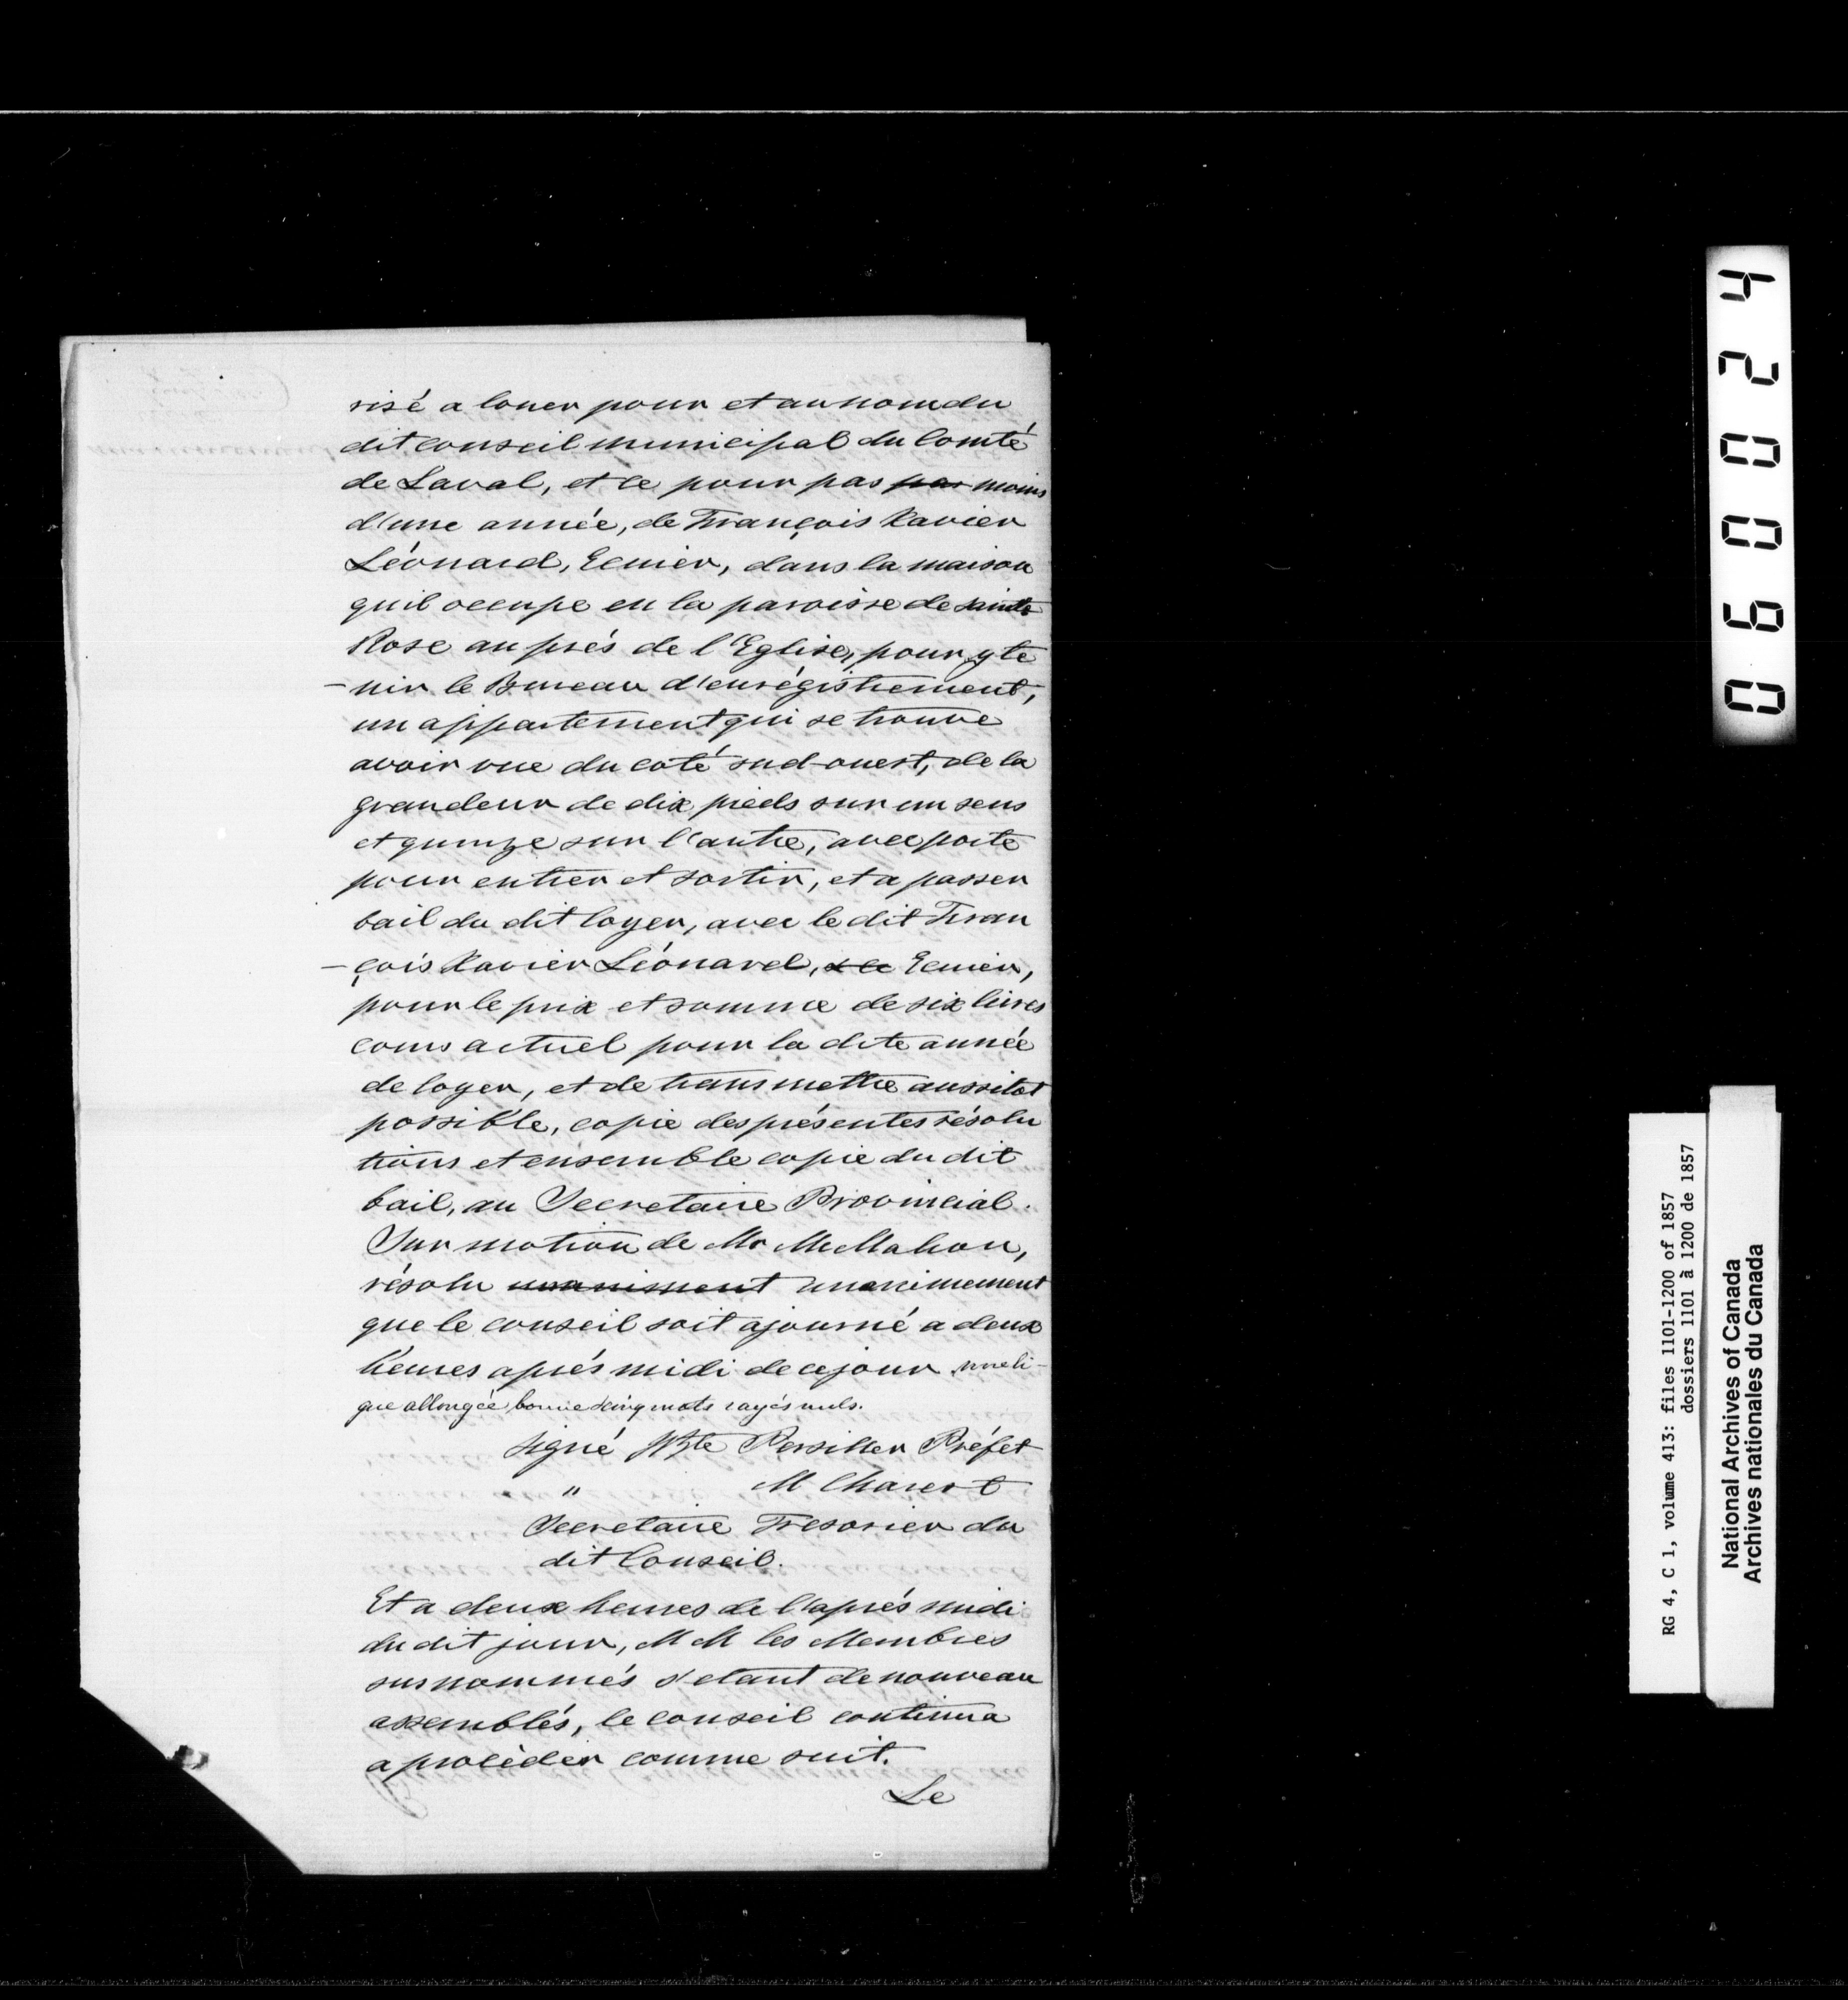 risé a louer pour et au nom du
dit conseil municipal du Comté
de Laval, et ce pour pas par moins
d'une année, de François Xavier
Léonard, Ecuier, dans la maison
qu'il occupe en la paroisse de Sainte
Rose au prés de l'Eglise, pour y te
-nir le Bureau d'enrégistrement,
un appartement qui se trouve
avoir vue du coté sud-ouest, de la
grandeur de dix pieds sur un sens
et quinze sur l'autre, avec porte
pour entrer et sortir, et a passer
bail du dit loyer, avec le dit Fran
-çois Xavier Léonard, Ecuier,
pour le prix et somme de six livres
cours actuel pour la dite année
de loyer, et de transmettre aussitot
possible, copie des présentes résolu
tions et ensemble copie du dit
bail, au Secretaire Provincial.
Sur motion de Mr McMahon,
résolu unaniment unanimement
que le conseil soit ajourné a deux
heures aprés midi de ce jour
allongée bonne & cinq mots rayés nuls.
Signé JBte Persillier Préfet
" M Charest
Secretaire Tresorier du
dit Conseil.
Et a deux heures de l'aprés midi
du dit jour, M M les Membres
susnommés s'etant de nouveau
assemblés, le conseil continua
a procèder comme suit.
Le
060024
RG 4, C 1, volume 413: files 1101-1200 of 1857
dossiers 1101 à 1200 de 1857
National Archives of Canada
Archives nationales du Canada